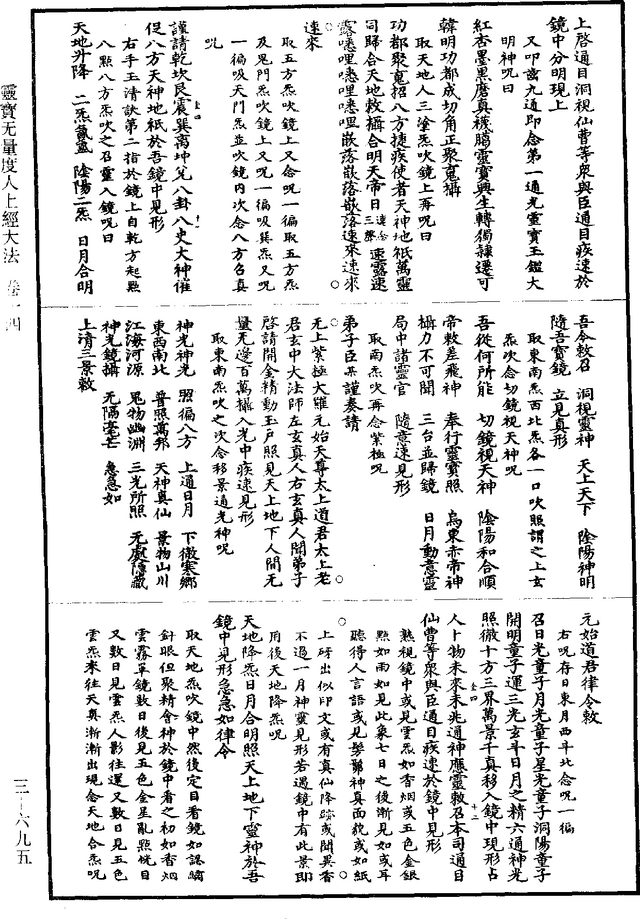 上啓通目洞視仙曹等衆與臣通目疾速於
鏡中分明現上
又叩齒九通即念第一通光靈寶玉鑑大
明神呪曰
紅杏墨黑磨真襪臈靈寶興生轉獨隷遷可
韓明功都成切角正聚䰟攝
取天地人三塗炁吹鏡上再呪曰
功都聚䰟招八方捷疾使者天神地祇萬靈
司歸合天地敕攝合明天帝日三聲連念速露速
露嘧哩嘧哩嘧哩嵌落嵌落嵌落速來速來
速來
取五方炁吹鏡上又念呪一徧取五方炁
及鬼門炁吹鏡上又呪一徧吸巽炁又呪
一徧吸天門炁並吹鏡內次念八方召真
呪
謹請乾坎艮震巽離坤兌八卦八史大神催
促八方天神地祇於吾鏡中見形
右手玉清訣第二指於鏡上自乾方起點
八點八方炁吹之召靈入鏡呪曰
天地升降 二炁氤氳 陰陽二炁 日月合明
吾令敕召 洞視靈神 天上天下 陰陽神明
隨吾寶鏡 立見真形
取東南炁西北炁各一口吹照謂之上玄
炁吹念切鏡視天神呪
吾從何所能 切鏡視天神 陰陽和合順
帝敕差飛神 奉行靈寶照 烏東赤帝神
攝力不可聞 三台並歸鏡 日月動意靈
局中諸靈官 隨意速見形
取南炁吹再念業極呪
弟子臣某謹奏請
无上紫極大羅元始天尊太上道君太上老
君玄中大法師左玄真人右玄真人開弟子
啓請開金精動玉戶照見天上地下人間无
量无邊百萬攝入光中疾速見形
取東南炁吹之次念移景通光神呪
神光神光 照徧八方 上通日月 下徹寒鄉
東西南北 普照萬邦 天神真仙 景物山川
江海河源 鬼物幽淵 三光所照 无處隱藏
神光鏡攝 无隔毫芒 急急如
上清三景敕
元始道君律令敕
右呪存日東月西斗北念呪一徧
召日光童子月光童子星光童子洞陽童子
開明童子運三光玄斗日月之精六通神光
照徹十方三界萬景千真移入鏡中現形占
人卜物未來未兆通神應靈敕召本司通目
仙曹等衆與臣通目疾速於鏡中見形
熟視鏡中或見雲炁如香烟或五色金銀
點如雨如見此象七日之後漸見如或耳
聽得人言語或見髣髴神真面貌或如紙
上砑出似印文或有真仙降跡或聞異香
不過一月神靈見形若遇鏡中有此景即
用後天地降炁呪
天地降炁日月合明照天上地下靈神於吾
鏡中見形急急如律令
取天地炁吹鏡中然後定目看鏡如認嬌
針眼但聚精會神於鏡中看之初如香烟
雲霧罩鏡數日後見五色金星亂點恍日
又數日見雲炁人影往還又數日見五色
雲炁來往天真漸漸出現念天地合炁呪
靈寶无量度人上經大法 卷十四
三-六九五